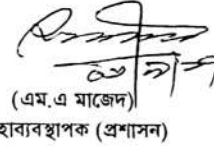 (এম.এ মাজেদ)
হাব্যবস্থাপক (প্রশাসন)